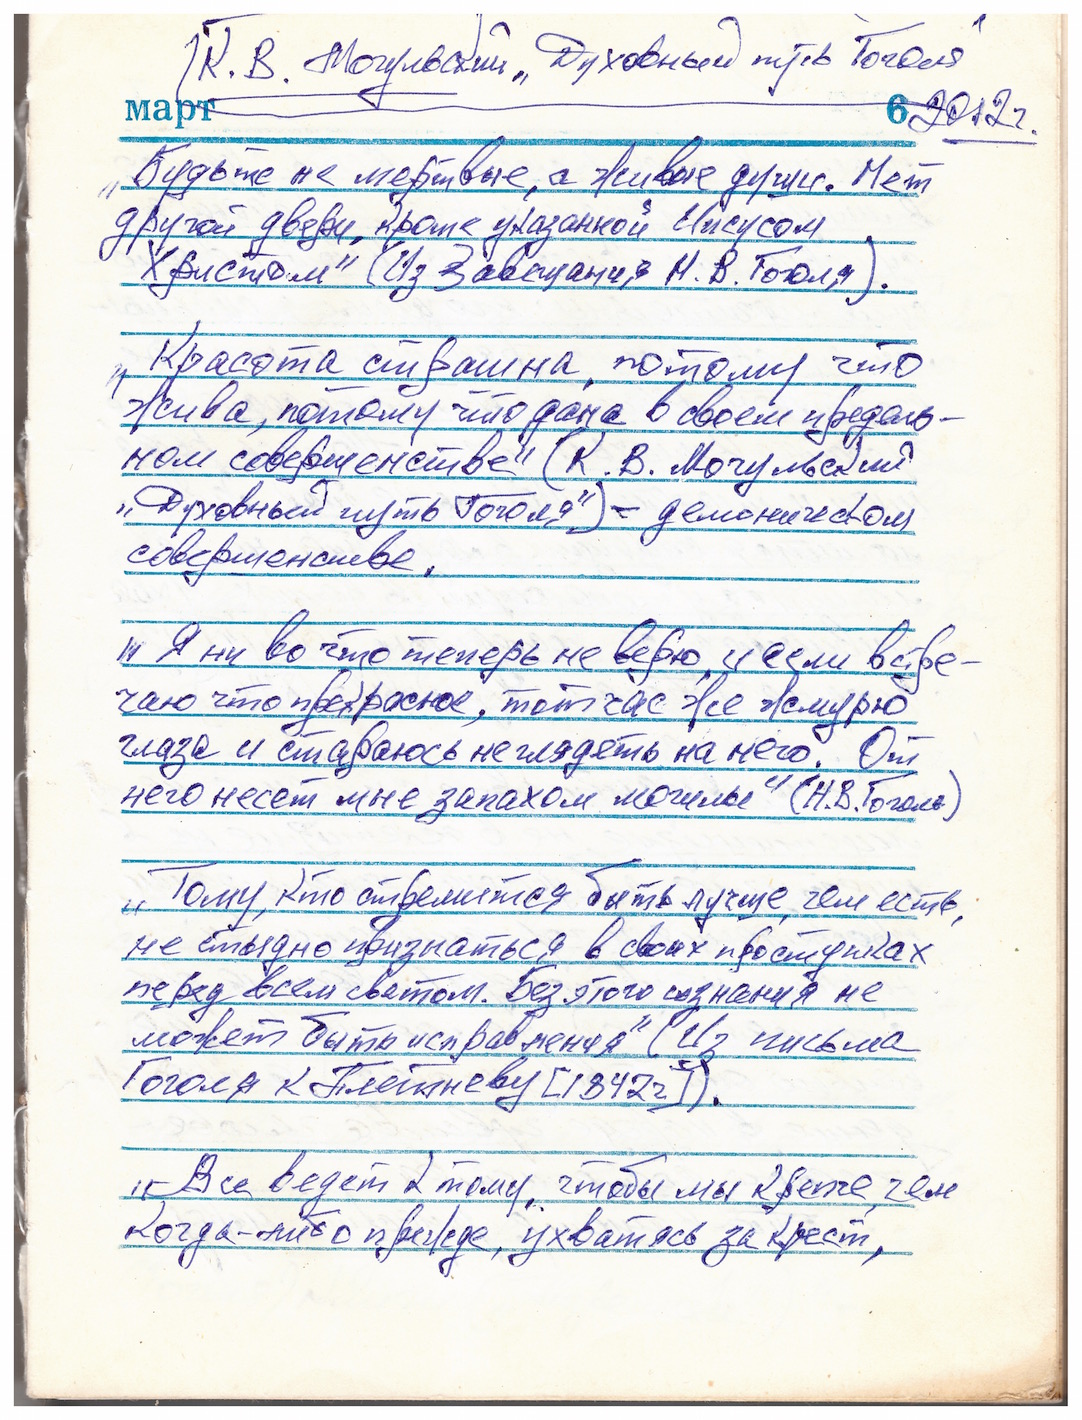 (К. В. Мочульский „Духовный путь Гоголя"
март 6 2012 г.
„Будьте не мертвые, а живые души. Нет
другой двери, кроме указанной Иисусом
Христом" (Из Завещания Н. В. Гоголя).
„Красота страшна, потому что
жива, потому что дана в своем предель-
ном совершенстве" (К. В. Мочульский
„Духовный путь Гоголя") - демоническом
совершенстве.
„Я ни во что теперь не верю и если встре-
чаю что прекрасное, тотчас же жмурю
глаза и стараюсь не глядеть на него. От
него несет мне запахом могилы" (Н.В. Гоголь)
„Тому, кто стремится быть лучше, чем есть,
не стыдно признаться в своих проступках
перед всем светом. Без этого сознания не
может быть исправления" (Из письма
Гоголя к Плетневу [1842 г]).
„Все ведет к тому, чтобы мы крепче, чем
когда-либо прежде, ухватясь за крест,